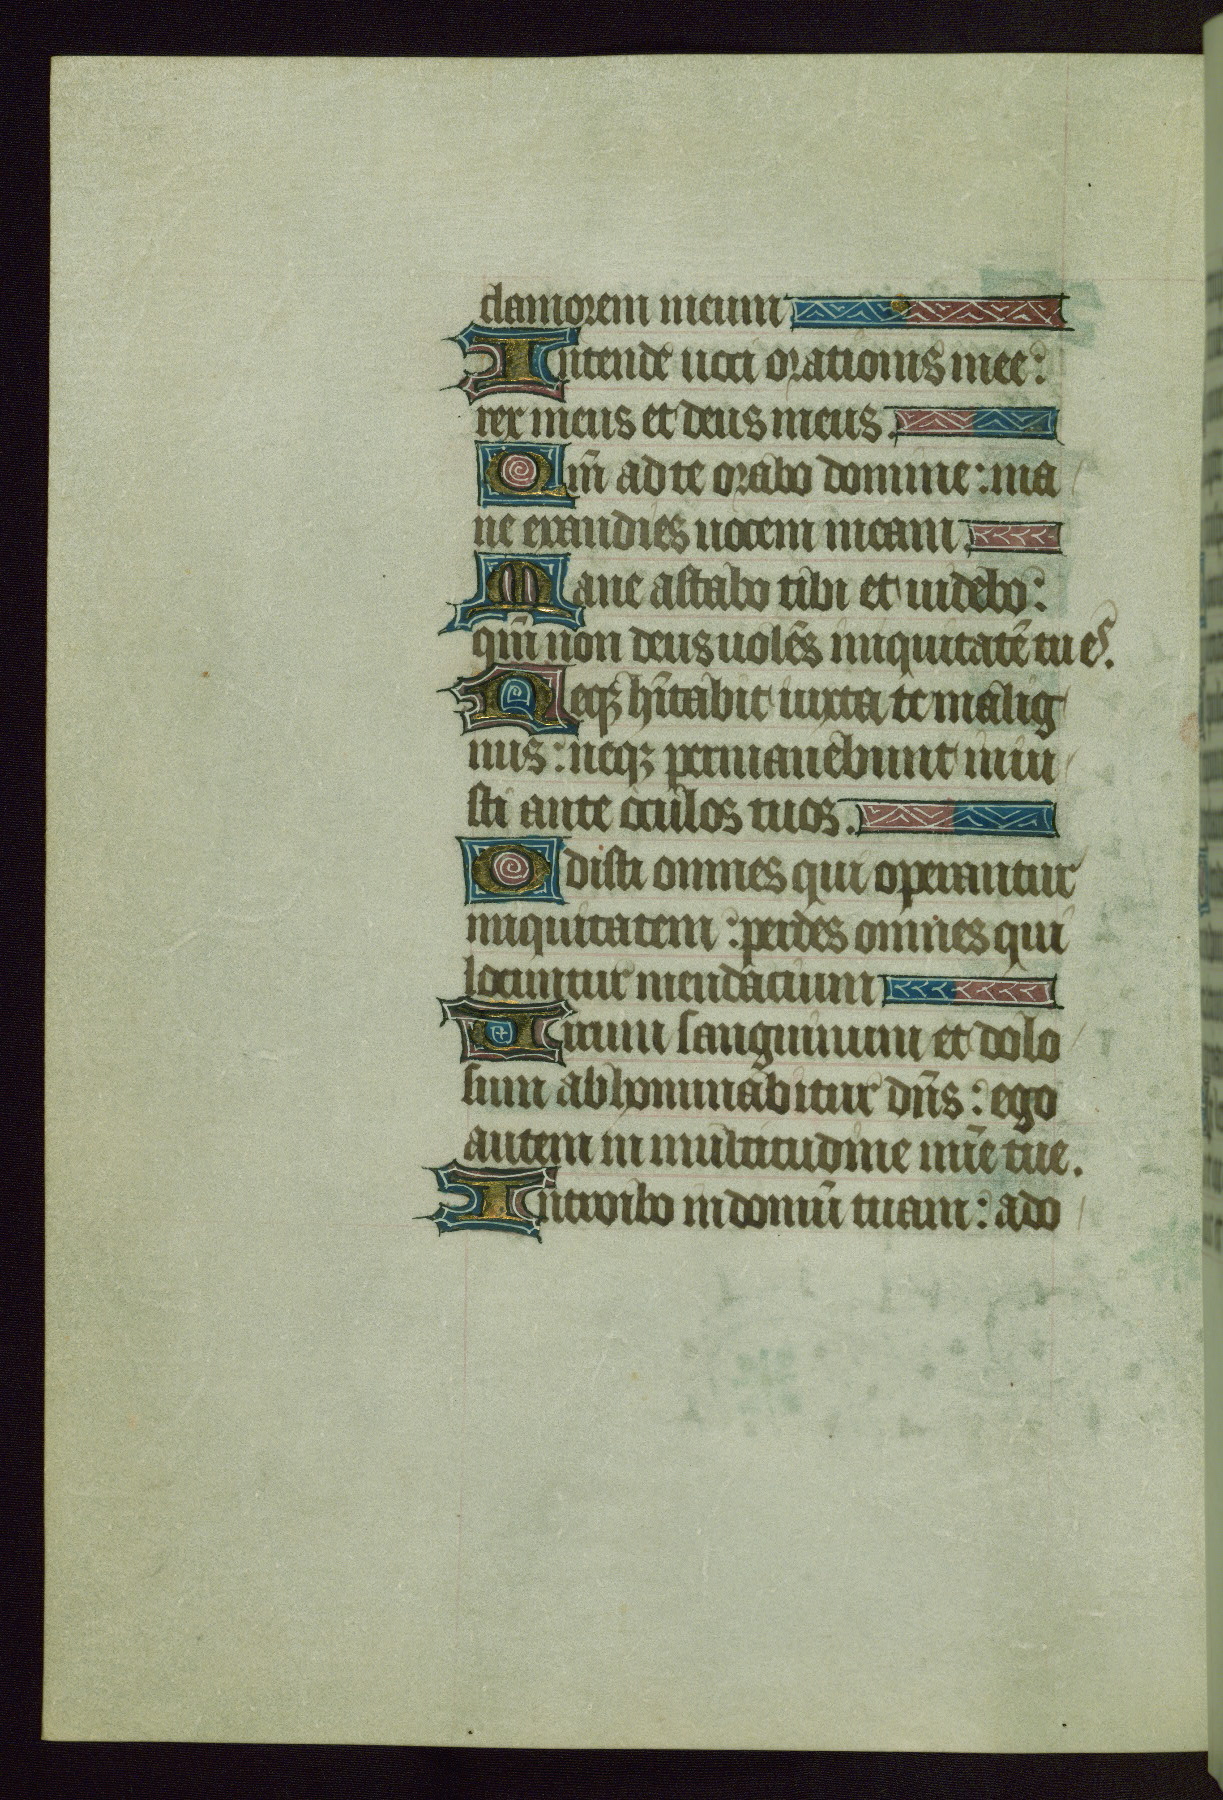 clamorem meum
Intende uoci orationis mee:
rex meus et deus meus.
Qm̄ ad te orabo domine: ma
ne exaudies uocem meam.
Mane astabo tibi et uidebo:
qm̄ non deus uolēs iniquitatē tu es.
Neqꝫ hītabit iuxta te malig
nus: neqꝫ permanebunt iniu
sti ante oculos tuos.
Odisti omnes qui operantur
iniquitatem: perdes omnes qui
locuntur mendacium
Uirum sanguinum et dolo
sum abhominabitur dn̄s: ego
autem in multitudine mīe tue.
Introibo in domū tuam: ado